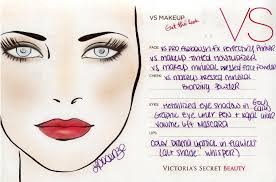 VS MAKEUP
Get the look
VS
FACE: VS PRO Airbrush FX Perfecting Primer
VS Makeup Tinted Moisturizer
VS Makeup Mineral Pressed Face Powder
CHEEKS: VS Makeup Pressed Mineral
Bronzing Powder
EYES: Metallized Eye Shadow in
Graphic Eye Liner Pen +
Volume Lift Mascara
LIPS: Color Drama Lipstick in Flawless
(alt shade: whisper)
VICTORIA'S SECRET BEAUTY